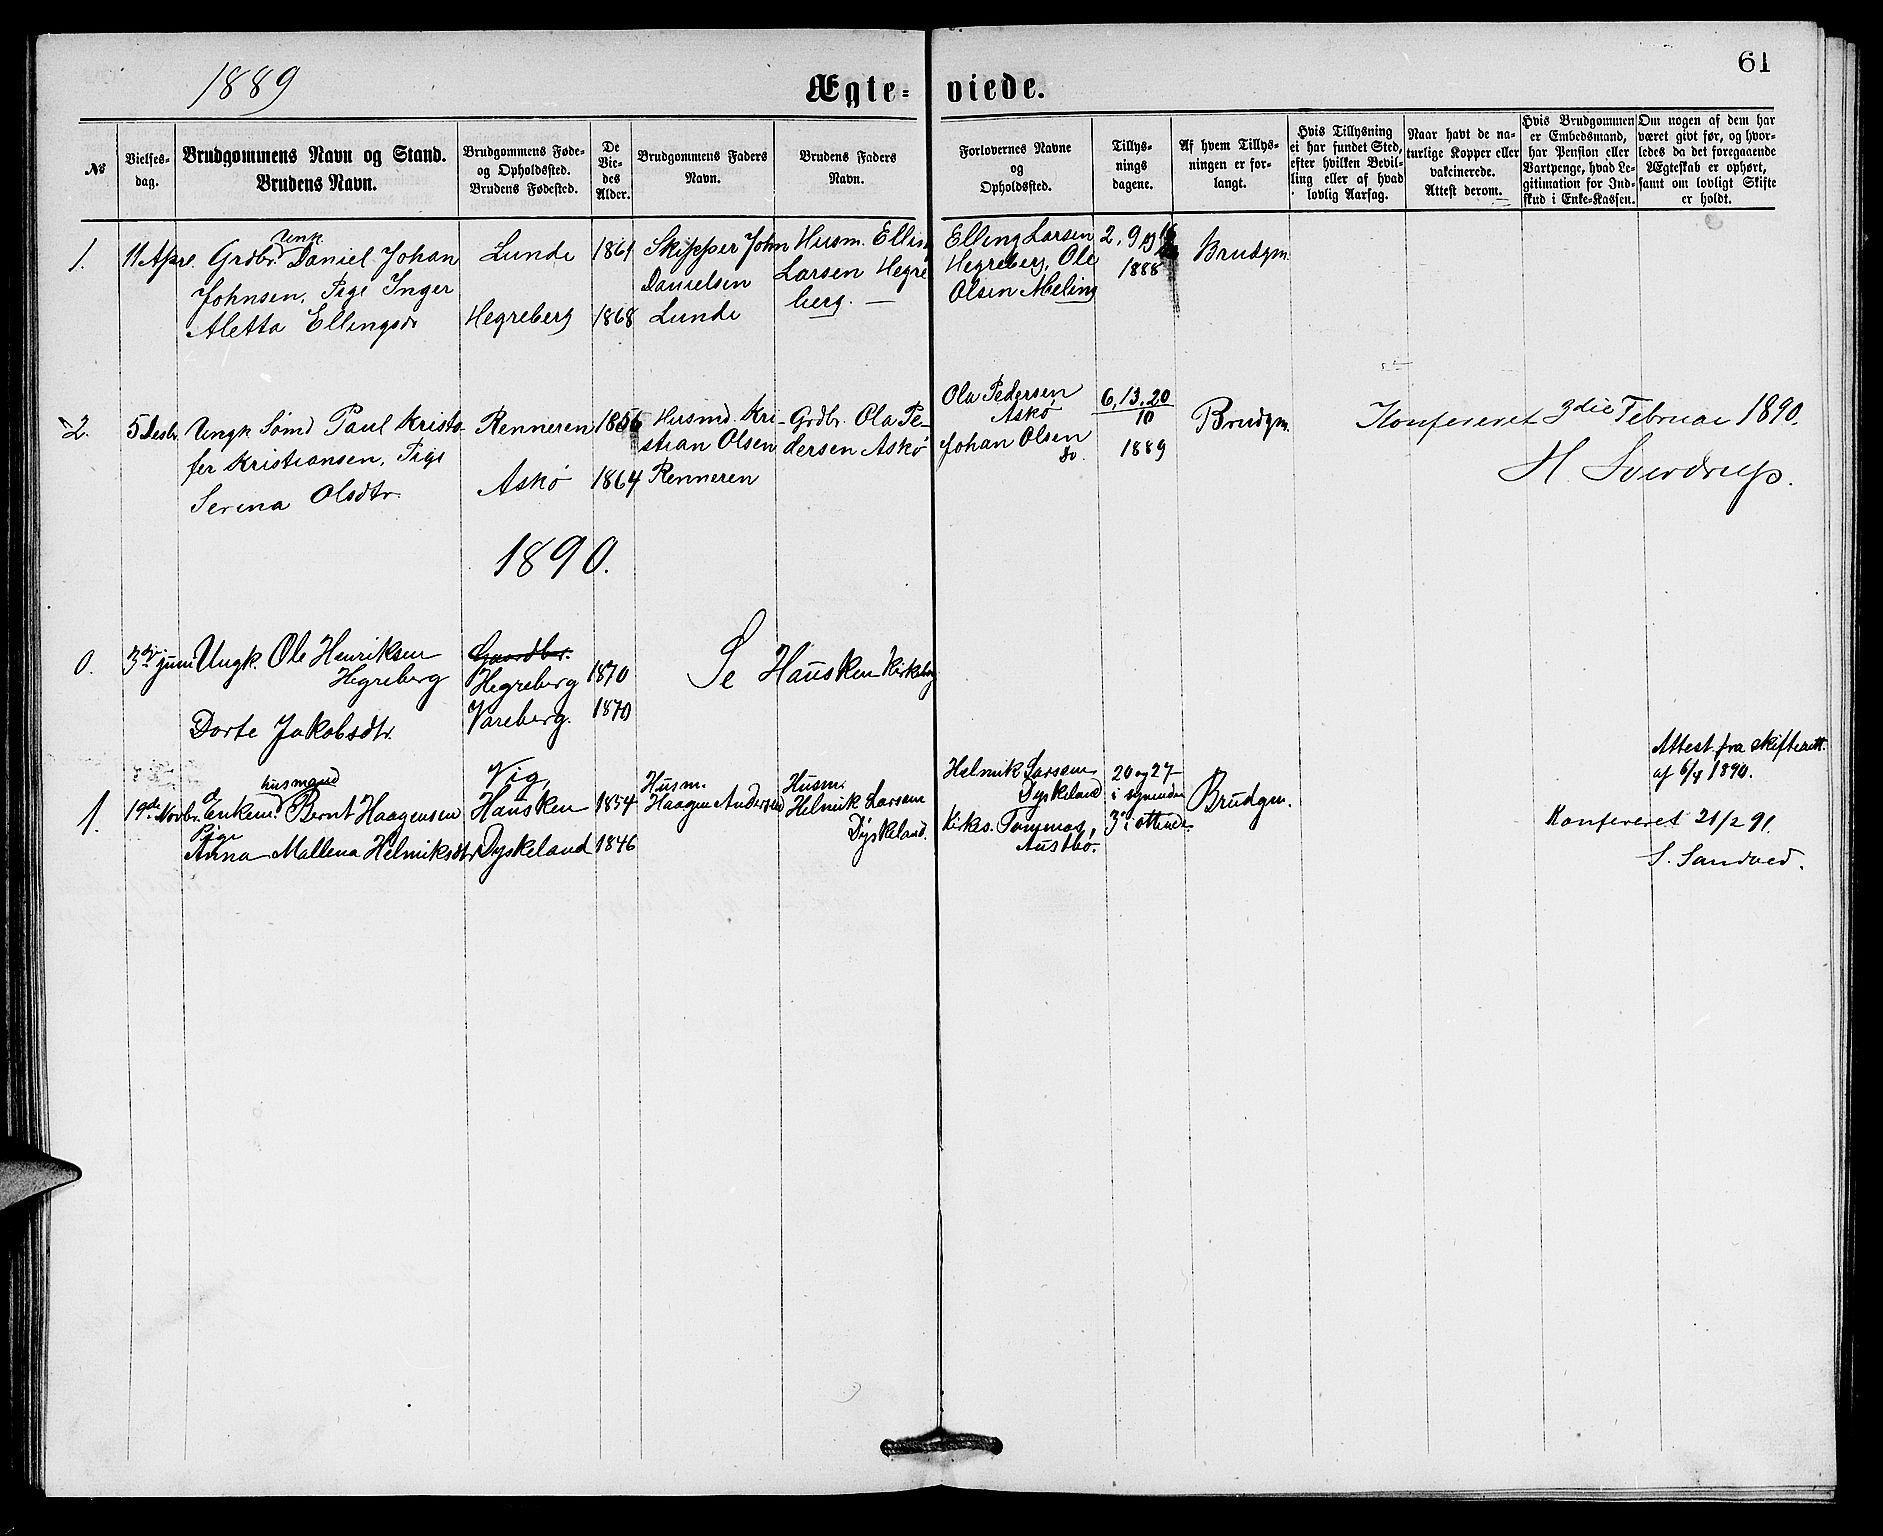 61
1889
Ægte- viede.
No
Vielses-
dag.
Brudgommens Navn og Stand.
Brudens Navn.
Brudgommens Føde-
og Opholdssted.
Brudens Fødested.
De
Vie-
des
Alder.
Brudgommens Faders
Navn.
Brudens Faders
Navn.
Forlovernes Navne
og
Opholdssted.
Tillys-
nings
dagene.
Af hvem Tillys-
ningen er for-
langt.
Hvis Tillysning
ei har fundet Sted,
efter hvilken Bevil-
ling eller af hvad
lovlig Aarsag.
Naar havt de na-
turlige Kopper eller
vakcinerede.
Attest derom.
Hvis Brudgommen
er Embedsmand,
har Pension eller
Vartpenge, hvad Le-
gitimation for Ind-
skud i Enke-Kassen.
Om nogen af dem har
været givt før, og hvor-
ledes da det foregaaende
Ægteskab er ophørt,
samt om lovligt Skifte
er holdt.
1.
11 Apr.
Ungk.
Grdbr. Daniel Johan
Johnsen, Pige Inger
Aletta Ellingsdr
Lunde
Hegreberg
1861
1868
Skipper John
Danielsen
Lunde
Husm. Elling
Larsen Hegre
berg. —
Elling Larsen
Hegreberg, Ole
Olsen Meling
2, 9 og 16
1888
Brudgm.
2.
5 Desbr.
Ungk Sømd Paul Kristo-
fer Kristiansen, Pige
Serina Olsdtr.
Renneren
Askø
1856
1864
Husmd Kri-
stian Olsen
Renneren
Grdbr. Ola Pe-
dersen Askø
Ola Pedersen
Askø
Johan Olsen
do.
6, 13. 20
10
1889
Brudgm.
Konfereret 3die Februar 1890.
H. Sverdrup.
1890.
0.
3die juni
Ungk. Ole Henriksen
Hegreberg
Dorte Jakobsdtr.
Gaardbr.
Hegreberg
Vareberg.
1870
1870
Se Hausken Kirkebog
1.
19de Novbr.
husmand
Enkem. Bernt Haagensen
Pige
Anna Mallena Helmiksdtr
Vig,
Hausken
Dyskeland
1854
1846
Husm.
Haagen Andersen
Husm.
Helmik Larsen
Dyskeland.
Helmik Larsen
Dyskeland
Kirkes. Tommas,
Austbø.
20 og 27
i syvende
3 i ottende
Brudgm.
Attest fra skifterett.
af 6/4 1890.
Konfereret 21/2 91.
S. Sandved.